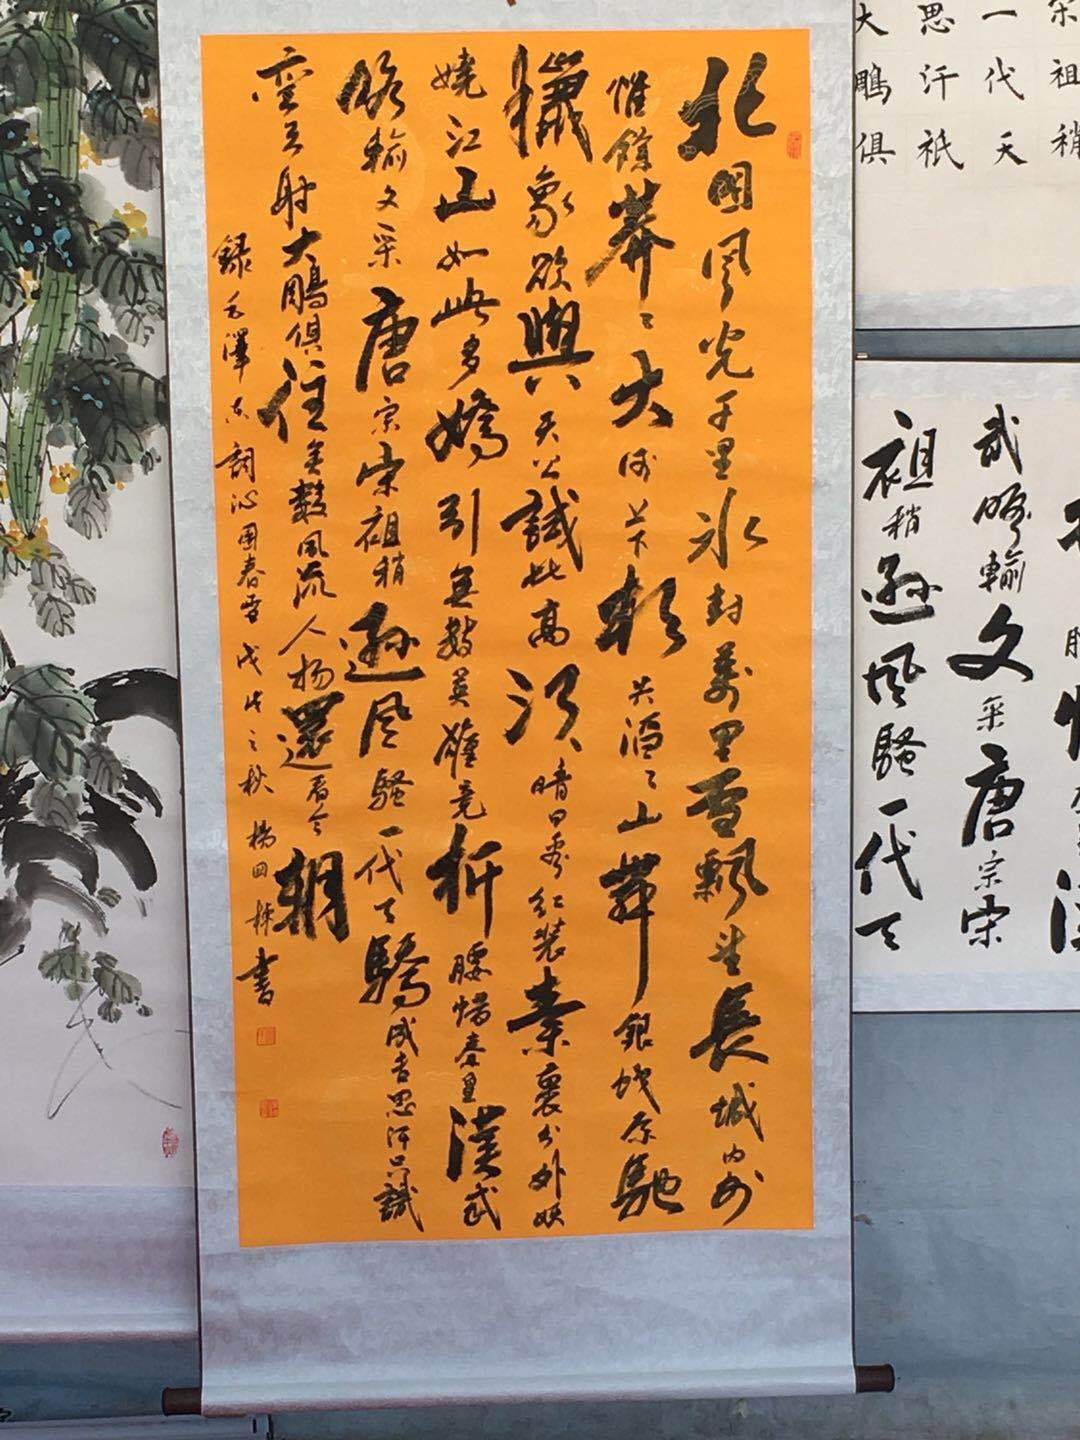 北国风光千里冰封萬里雪飘望長城内外
惟餘莽〻大河上下頓失滔〻山舞銀蛇原馳
蠟象欲與天公試比高須晴日看红装素裹分外妖
嬈江山如此多嬌引无数英雄竞折腰惜秦皇漢武
略輸文采唐宗宋祖稍遜风騷一代天驕成吉思汗只識
彎弓射大鵰俱往矣數風流人物還看今朝
録毛澤东詞沁園春雪戊戌之秋 楊田棟書
宋祖稍
一代天
思汗衹
大鵰俱
武略輸文采唐宗宋
祖稍遜风騷一代天